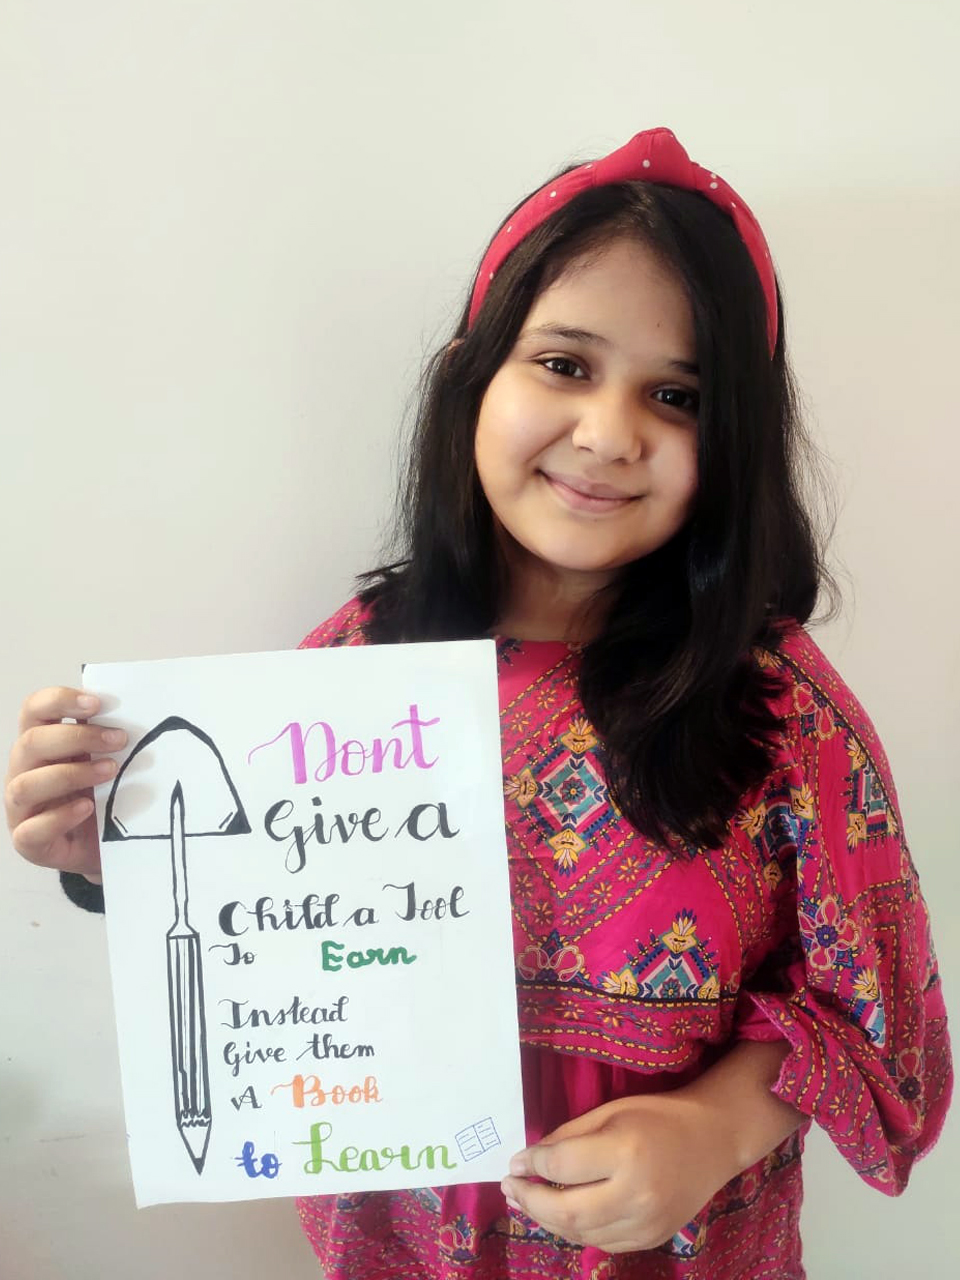 Dont
Give a
Child a Tool
To Earn
Instead
Give them
A Book
to Learn